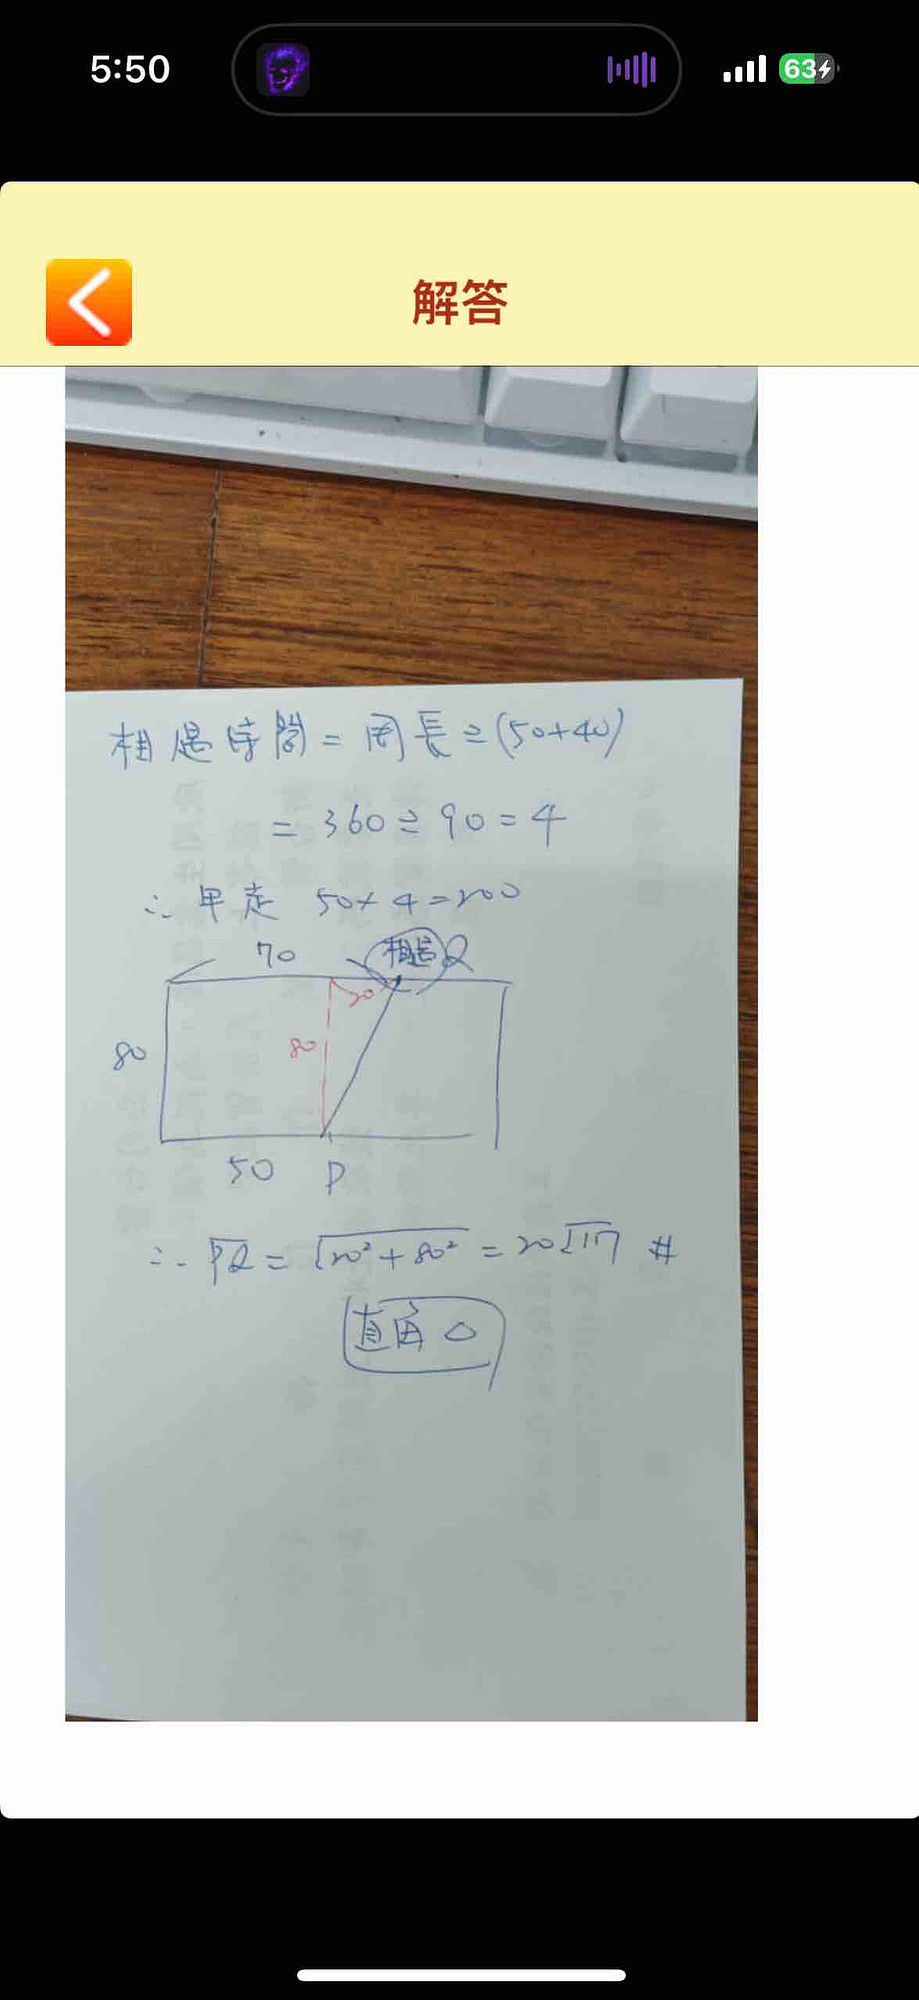 5:50
63
解答
相遇時間 = 周長 ÷ (50+40)
= 360 ÷ 90 = 4
∴ 甲走 50×4=200
70 相遇 Q
20
80 80
50 P
∴ PQ = √20²+80² = 20√17 #
直角△